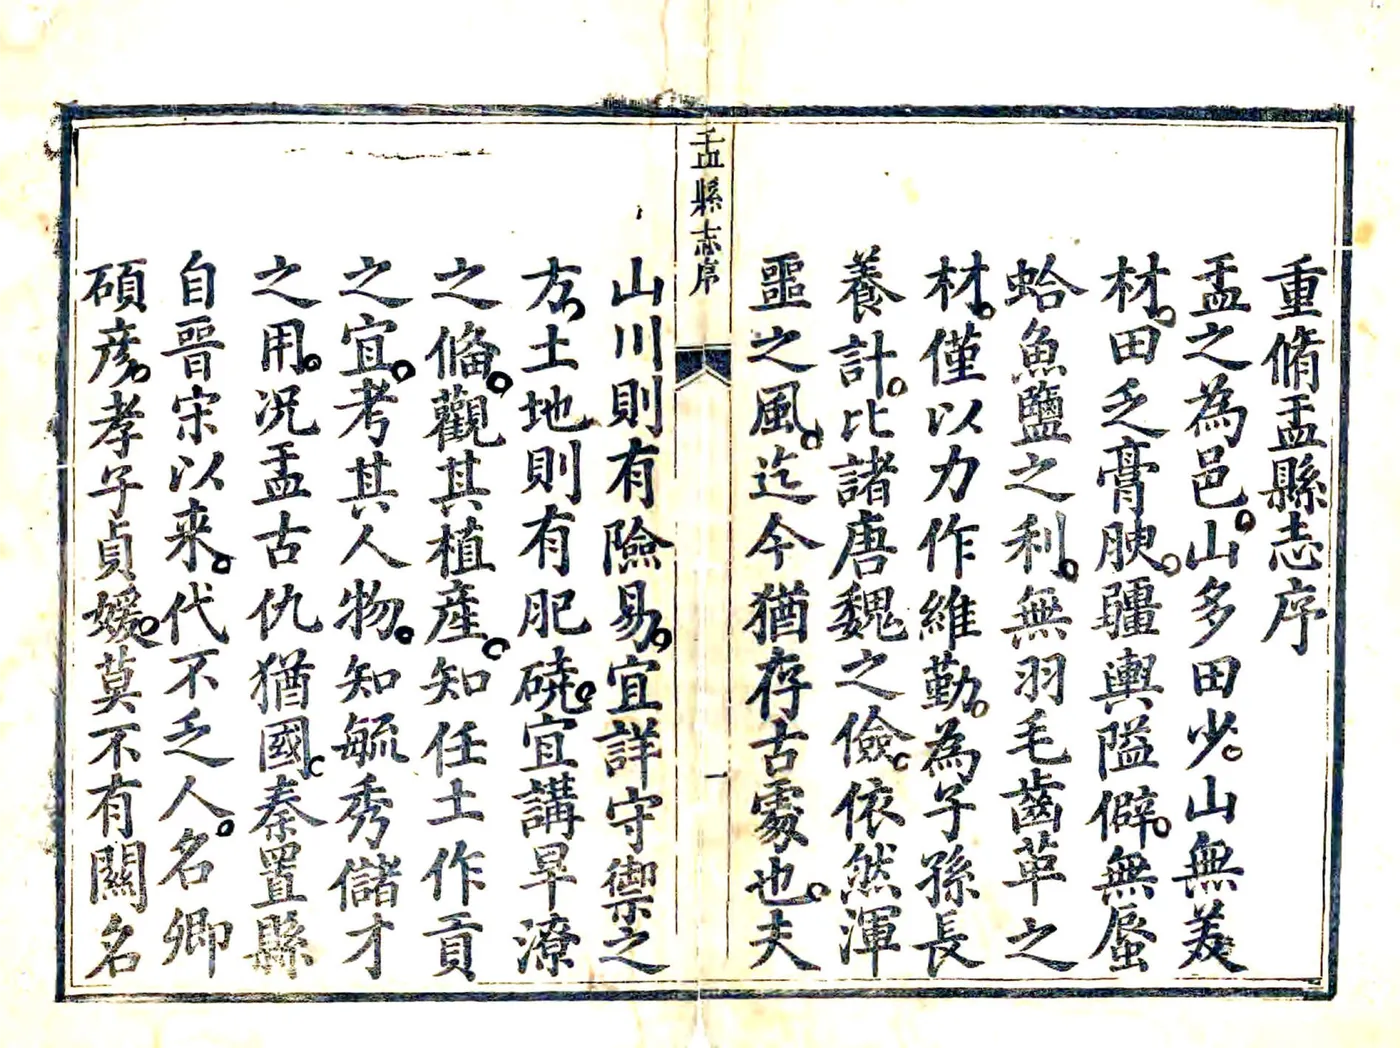 重脩盂縣志序
盂之為邑。山多田少。山無美
材。田乏膏腴。疆輿隘僻。無蜃
蛤魚鹽之利。無羽毛齒革之
材。僅以力作維勤。為子孫長
養計。比諸唐魏之儉。依然渾
噩之風。迄今猶存古處也。夫
盂縣志序
一
山川則有險易。宜詳守禦之
方。土地則有肥磽。宜講旱潦
之俻。觀其植產。知任土作貢
之宜。考其人物。知毓秀儲才
之用。况盂古仇猶國。秦置縣
自晉宋以来。代不乏人。名卿
碩彥。孝子貞媛。莫不有關名